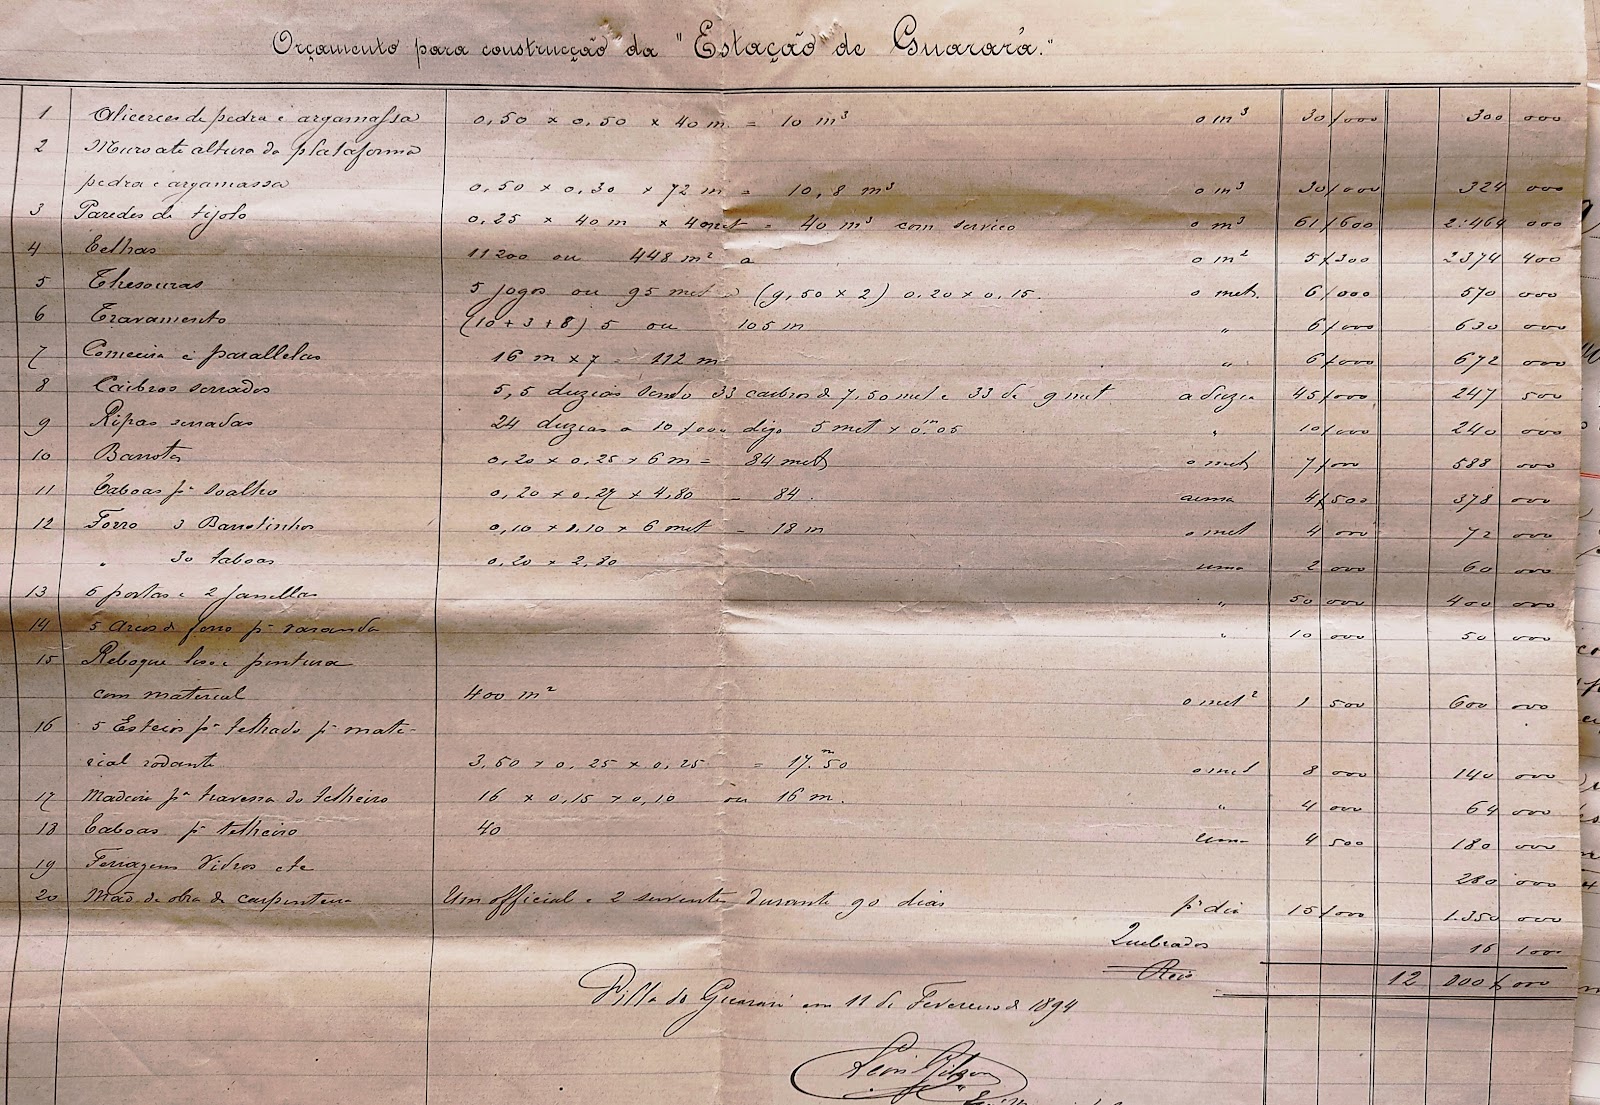 Orçamento para construcção da "Estação de Guarará."
1 Alicerces de pedra e argamassa 0,50 x 0,50 x 40 m. = 10 m³ o m³ 30/000 300 000
2 Muro até altura da plataforma
pedra e argamassa 0,50 x 0,30 x 72 m = 10,8 m³ o m³ 30/000 324 000
3 Paredes de tijolo 0,25 x 40 m x 4 met = 40 m³ com serviço o m³ 61/600 2:464 000
4 Telhas 11200 ou 448 m² a o m² 5/300 2374 400
5 Thesouras 5 jogos ou 95 met (9,50 x 2) 0,20 x 0,15. o met. 6/000 570 000
6 Travamento (10+3+8) 5 ou 105 m " 6/000 630 000
7 Comieira e parallelas 16 m x 7 = 112 m " 6/000 672 000
8 Caibros serrados 5,5 duzias sendo 33 caibros de 7,50 met e 33 de 9 met a duzia 45/000 247 500
9 Ripas serradas 24 duzias a 10/000 digo 5 met x 0,m05 " 10/000 240 000
10 Barrotes 0,20 x 0,25 x 6 m = 84 met o met 7/000 588 000
11 Taboas pª soalho 0,20 x 0,27 x 4,80 = 84. a uma 4/500 378 000
12 Forro 3 Barrotinhos 0,10 x 0,10 x 6 met = 18 m o met 4 000 72 000
" 30 taboas 0,20 x 2,80 uma 2 000 60 000
13 6 portas e 2 janellas " 50 000 400 000
14 5 Arcos de ferro pª varanda " 10 000 50 000
15 Reboque liso e pintura
com material 400 m² o met² 1 500 600 000
16 5 Esteios pª telhado pª mate-
rial rodante 3,50 x 0,25 x 0,25 = 17,m50 o met 8 000 140 000
17 Madeira pª travessa do telheiro 16 x 0,15 x 0,10 ou 16 m. " 4 000 64 000
18 Taboas pª telheiro 40 uma 4 500 180 000
19 Ferragens Vidros etc 280 000
20 Mão de obra de carpinteiro Um official e 2 serventes durante 90 dias pª dia 15/000 1.350 000
Quebrados 16 100
Reis 12 000 $ 000
Villa do Guarará em 11 de Fevereiro de 1894